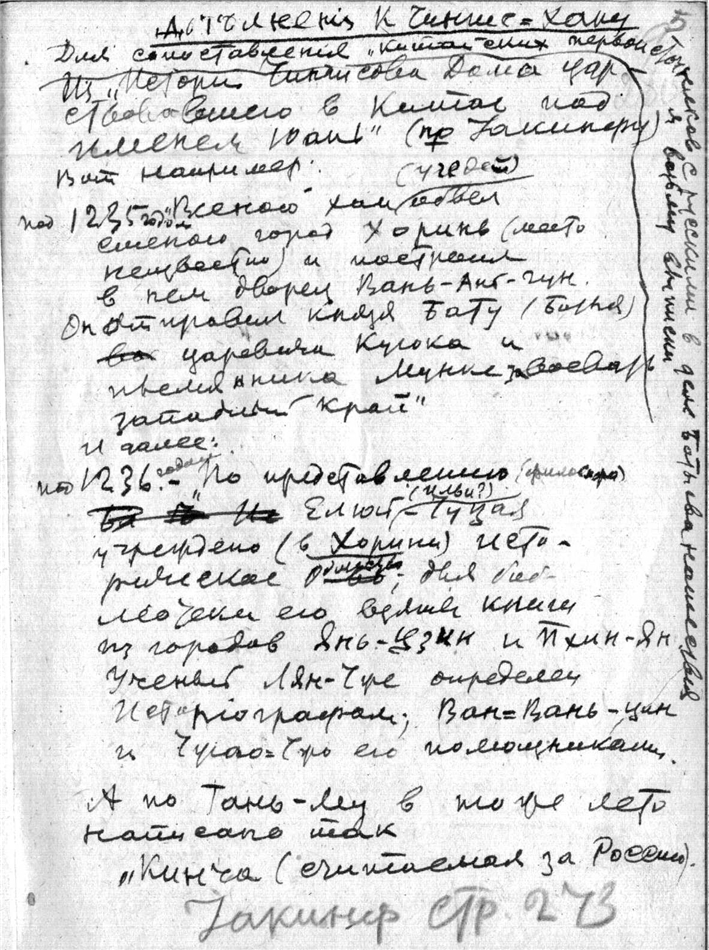 Дополнения к Чингис=Хану
Для сопоставления "Китайских первоисточников с русскими в деле Батыева нашествия я возьму выписки
Из "Истории Чингисова Дома цар-
ствовавшего в Китае под
именем Юань" (пр Иакинфу)
Вот например:
под 1235 годом "Весною хан (Угедей) обвел
стеною город Хоринь (место
неизвестно) и построил
в нем дворец Вань-Ань-гун.
Он отправил князя Бату (Батыя)
царевича Куюка и
племянника Мункэ завоевать
западный край"
и далее:
под 1236 годом.- "По представлению (философа)
Елюй-Чуцая (Ильи?)
учреждено (в Хорини) исто-
рическое общество; для биб-
лиотеки его взяты книги
из городов Янь-Цзин и Пхин-ян
Ученый Лян-Чже определен
Историографом; Ван=Вань-цин
и Чжао=Чжо его помощниками.
А по Гань-Му в то же лето
написано так
"Кинча (считаемая за Россию).
Иакинф стр. 273